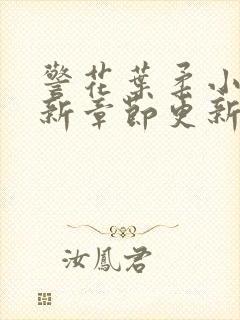 警花葉柔小
新章節更新
汝鳳君